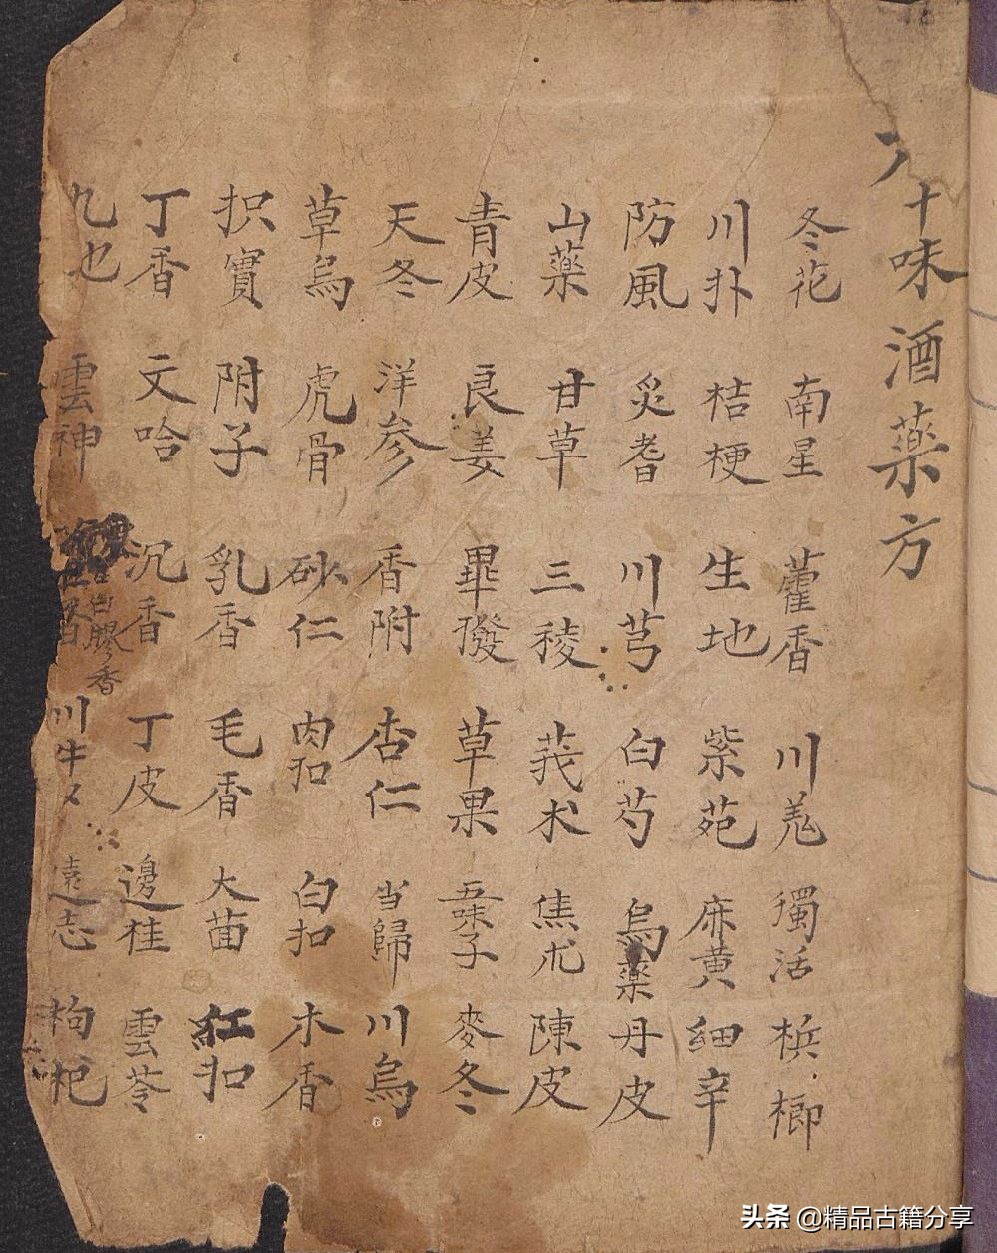 十味酒薬方
冬花 南星 藿香 川羗 獨活 梹榔
川扑 桔梗 生地 紫苑 麻黄 細辛
防風 炙耆 川芎 白芍 烏薬 丹皮
山薬 甘草 三稜 莪术 焦朮 陳皮
青皮 良姜 畢撥 草果 五味子 麥冬
天冬 洋参 香附 杏仁 当歸 川烏
草烏 虎骨 砂仁 肉扣 白扣 木香
枳實 附子 乳香 毛香 大茴 紅扣
丁香 文哈 沉香 丁皮 邊桂 雲苓
白膠香
九也 雲神 川牛夕 遠志 枸杞
头条 @精品古籍分享